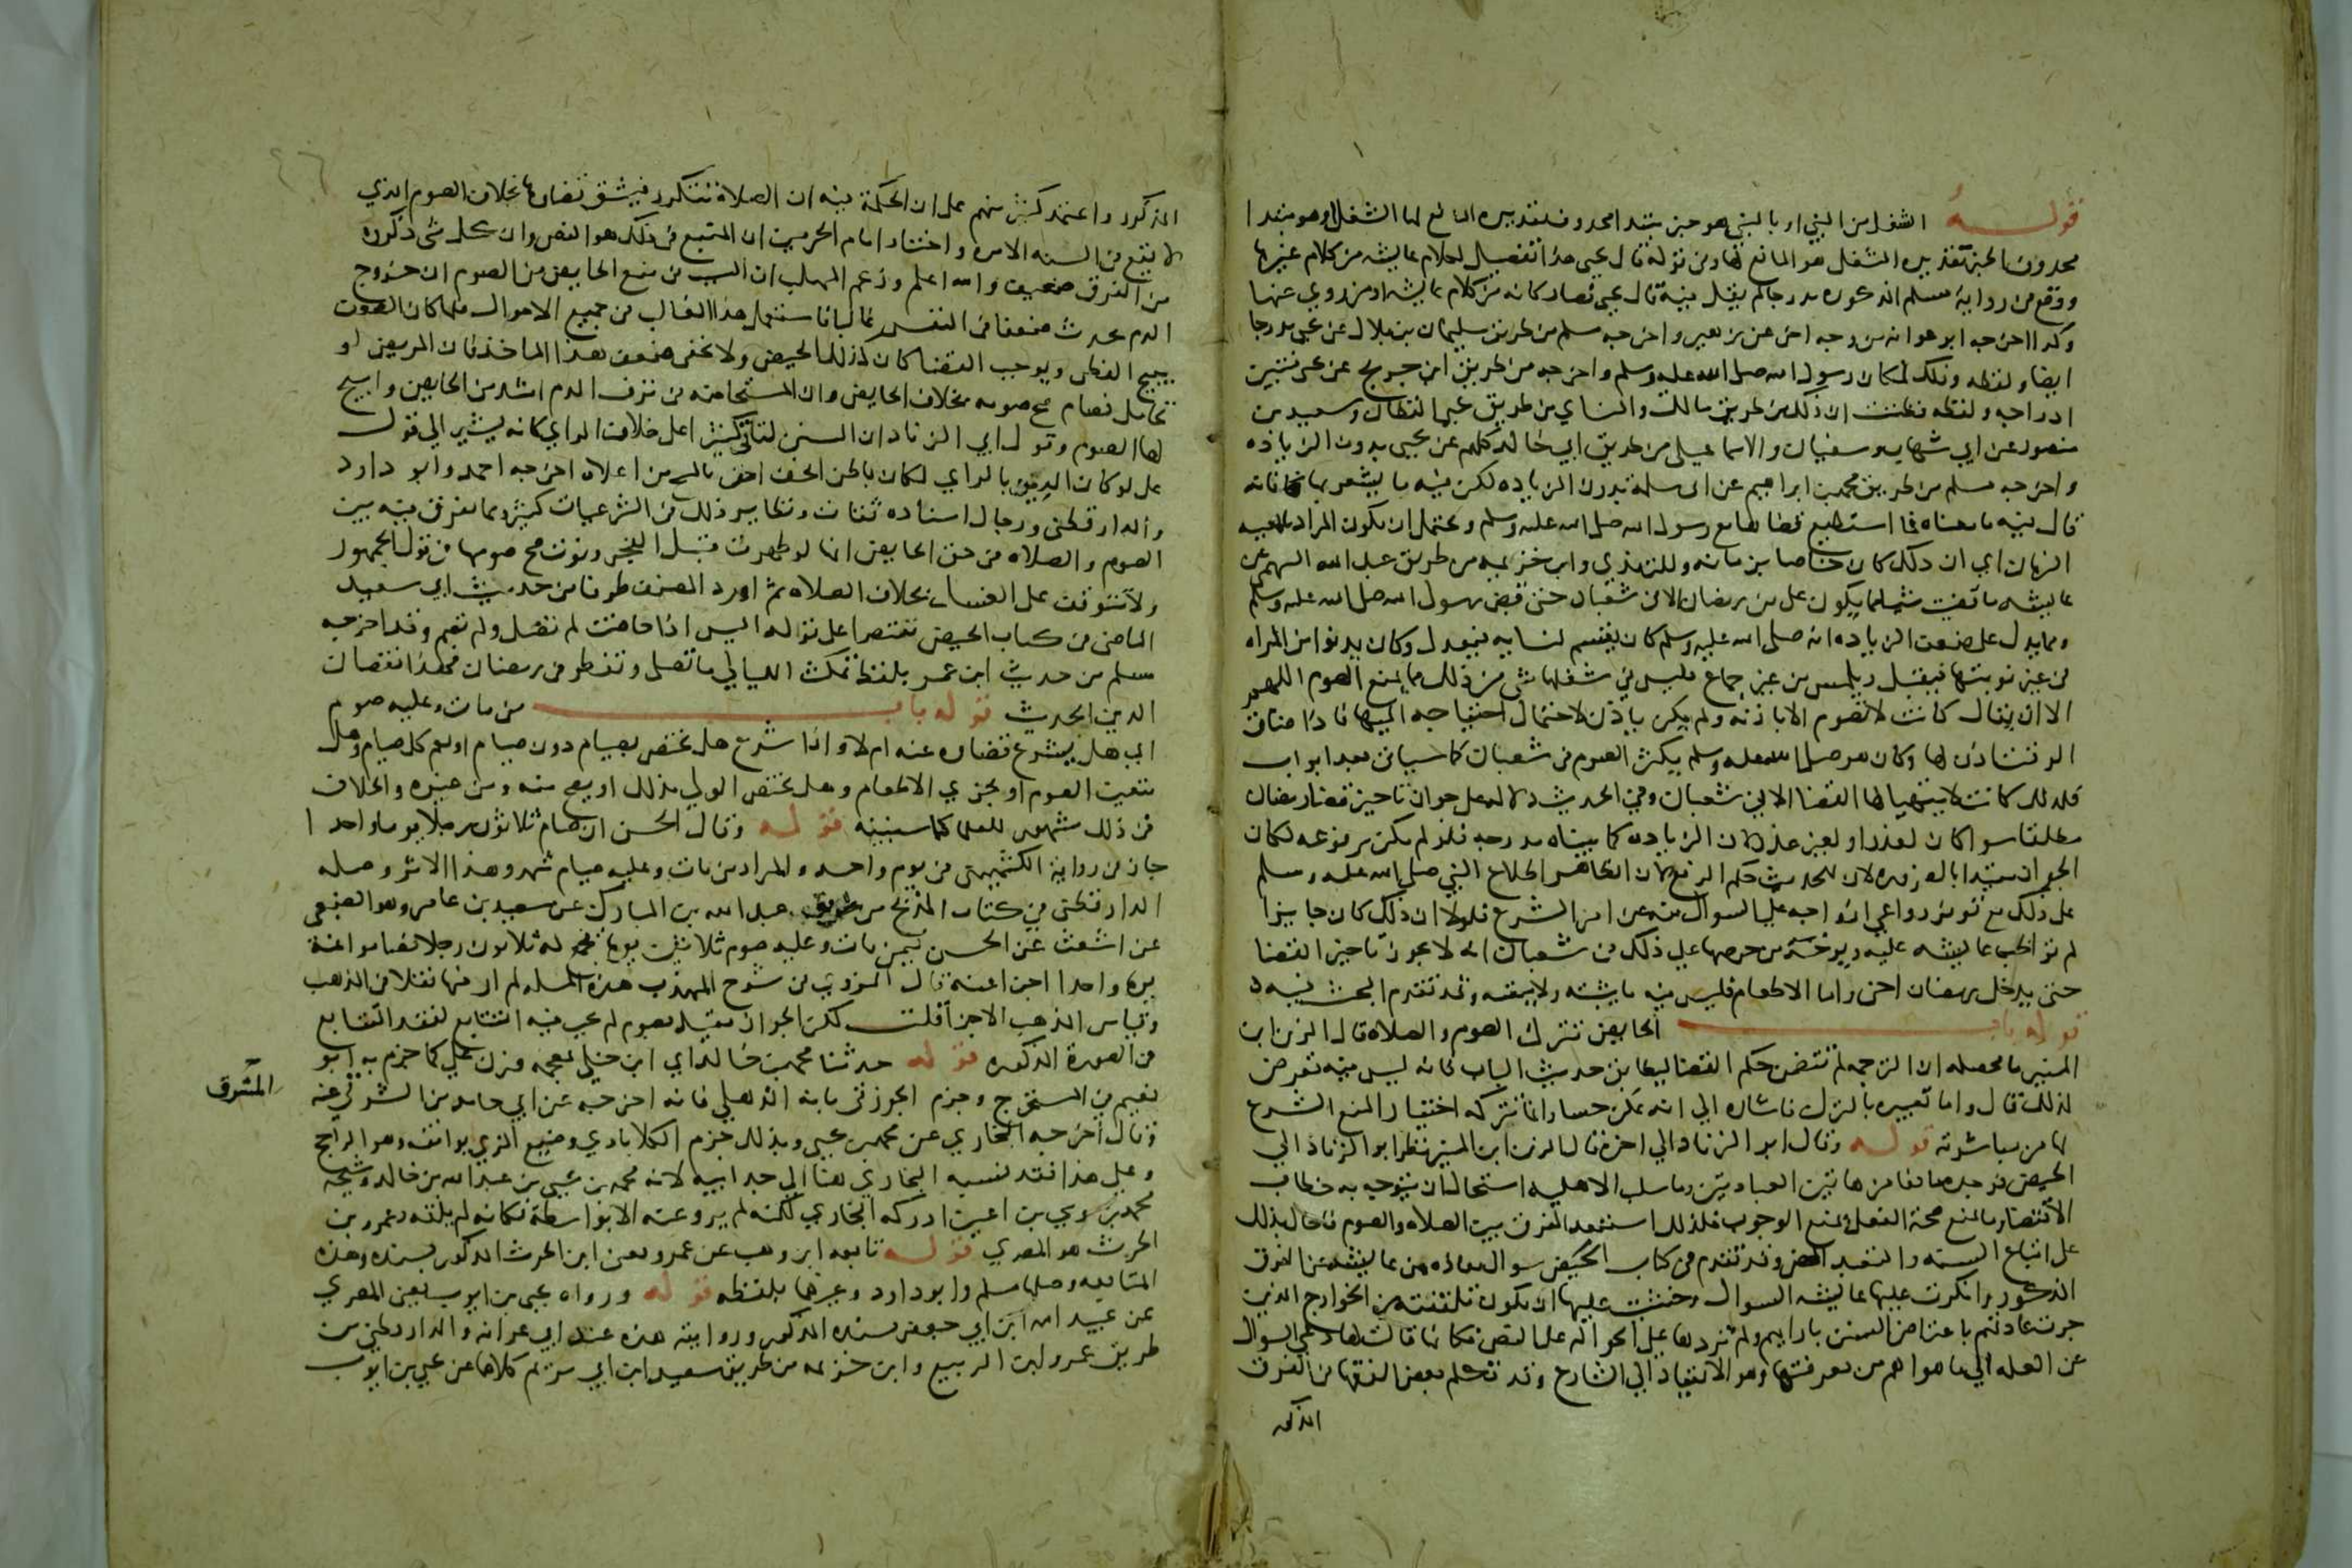 قوله الشغل من النبي او بالنبي هو خبر مبتدا محذوف تقديره المانع لها الشغل او هو مبتدا
محذوف الخبر تقديره الشغل هو المانع لها وفي قوله قال يحيى هذا تفصيل لكلام عايشه من كلام غيرها
ووقع في رواية مسلم المذكوره مدرجا لم يقل فيه قال يحيى فصار كانه من كلام عايشه او من روي عنها
وكذا اخرجه ابو عوانه من وجه اخر عن زهير واخرجه مسلم من طريق سليمان بن بلال عن يحيى مدرجا
ايضا ولفظه وذلك لمكان رسول الله صلى الله عليه وسلم واخرجه من طريق ابن جريج عن يحيى فبين
ادراجه ولفظه فظننت ان ذلك من طريق مالك والنساي من طريق يحيى القطان وسعيد بن
منصور عن ابي شهاب وسفيان والاسماعيلي من طريق ابي خالد كلهم عن يحيى بدون الزياده
واخرجه مسلم من طريق محمد بن ابراهيم عن ابي سلمة بدون الزياده لكن فيه ما يشعر بها فانه
قال فيه ما معناه فما استطيع قضاها مع رسول الله صلى الله عليه وسلم ويحتمل ان يكون المراد بالمعيه
الزمان اي ان ذلك كان خاصا بزمانه وللترمذي وابن خزيمه من طريق عبد الله البهي عن
عايشه ما قضيت شيا مما يكون علي من رمضان الا في شعبان حتى قبض رسول الله صلى الله عليه وسلم
ومما يدل على ضعف الزياده انه صلى الله عليه وسلم كان يقسم لنسايه فيعدل وكان يدنو من المراه
في غير نوبتها فيقبل ويلمس من غير جماع فليس في شغلها بشي من ذلك مما يمنع الصوم اللهم
الا ان يقال كانت لا تصوم الا باذنه ولم يكن ياذن لاحتمال احتياجه اليها فاذا ضاق
الوقت اذن لها وكان هو صلى الله عليه وسلم يكثر الصوم في شعبان كما سياتي بعد ابواب
فلذلك كانت لا يتهيا لها القضا الا في شعبان وفي الحديث دلالة على جواز تاخير قضا رمضان
مطلقا سوا كان لعذر او لغير عذر لان الزياده كما بيناه مدرجه فلو لم تكن مرفوعه لكان
الجواز مقيدا بالضروره لان للحديث حكم الرفع لان الظاهر اطلاع النبي صلى الله عليه وسلم
على ذلك مع توفر دواعي ازواجه على السوال منه عن امر الشرع فلولا ان ذلك كان جايزا
لم تواظب عايشه عليه ويوخذ من حرصها على ذلك في شعبان انه لا يجوز تاخير القضا
حتى يدخل رمضان اخر واما الاطعام فليس فيه ما يثبته ولا ينفيه وقد تقدم البحث فيه
قوله باب الحايض تترك الصوم والصلاة قال الزين ابن
المنير ما محصله ان الترجمه لم تتضمن حكم القضا ليطابق حديث الباب فانه ليس فيه تعرض
لذلك قال واما تعبيره بالترك فاشاره الي انه ممكن حسا وانما تتركه اختيارا لمنع الشرع
لها من مباشرته قوله وقال ابو الزناد الي اخره قال الزين ابن المنير نظر ابو الزناد الي
الحيض فوجده مانعا من هاتين العبادتين وما سلب الاهليه استحال ان يتوجه به خطاب
الاقتضا وما يمنع صحة الفعل يمنع الوجوب فلذلك استبعد الفرق بين الصلاه والصوم فاحال بذلك
على اتباع السنه والتعبد المحض وقد تقدم في كتاب الحيض سوال معاذه من عايشه عن الفرق
المذكور وانكرت عليها عايشه السوال وخشيت عليها ان تكون تلقنته من الخوارج الذين
جرت عادتهم باعتراض السنن بارايهم ولم تزدها على الحواله على النص فكانها قالت لها دعي السوال
عن العله الي ما هو اهم من معرفتها وهو الانقياد الي الشارع وقد تكلم بعض الفقها في الفرق
المذكور
المذكور واعتمد كثير منهم على ان الحكمة فيه ان الصلاة تتكرر فيشق قضاوها بخلاف الصوم الذي
لا يقع في السنه الا مره واختار امام الحرمين ان المتبع في ذلك هو النص وان كل شي ذكروه
من الفرق ضعيف والله اعلم وزعم المهلب ان السبب في منع الحايض من الصوم ان خروج
الدم يحدث ضعفا في النفس غالبا فاستعمل هذا الغالب في جميع الاحوال فلما كان الضعف
يبيح الفطر ويوجب القضا كان كذلك الحيض ولا يخفى ضعف هذا الماخذ فان المريض لو
تحامل فصام صح صومه بخلاف الحايض وان المستحاضه في نزف الدم اشد من الحايض وابيح
لها الصوم وقول ابي الزناد ان السنن لتاتي كثيرا على خلاف الراي كانه يشير الي قول
علي لو كان الدين بالراي لكان باطن الخف احق بالمسح من اعلاه اخرجه احمد وابو دارد
والدارقطني ورجال اسناده ثقات ونظاير ذلك في الشرعيات كثيره ومما يفرق فيه بين
الصوم والصلاه في حق الحايض انها لو طهرت قبل الفجر ونوت صح صومها في قول الجمهور
ولا تتوقف على الغسل بخلاف الصلاه ثم اورد المصنف طرفا من حديث ابي سعيد
الماضي في كتاب الحيض مقتصرا على قوله اليس اذا حاضت لم تصل ولم تصم وقد اخرجه
مسلم من حديث ابن عمر بلفظ تمكث الليالي ما تصلي وتفطر في رمضان فهذا نقصان
الدين الحديث قوله باب من مات وعليه صوم
اي هل يشرع قضاوه عنه ام لا واذا شرع هل يختص بصيام دون صيام او يعم كل صيام وهل
يتعين الصوم او يجزي الاطعام وهل يختص الولي بذلك او يصح منه ومن غيره والخلاف
في ذلك مشهور للعلما كما سنبينه قوله وقال الحسن ان صام ثلاثون رجلا يوما واحدا
جاز في رواية الكشميهني في يوم واحد والمراد من مات وعليه صيام شهر وهذا الاثر وصله
الدارقطني في كتاب المذبح من طريق عبد الله بن المبارك عن سعيد بن عامر وهو الضبعي
عن اشعث عن الحسن فيمن مات وعليه صوم ثلاثين يوما فجمع له ثلاثون رجلا فصاموا عنه
يوما واحدا اجزا عنه قال النووي في شرح المهذب هذه المسله لم ار فيها نقلا في المذهب
وقياس المذهب الاجزا قلت لكن الجواز مقيد بصوم لم يجب فيه التتابع لفقد التتابع
في الصورة المذكوره قوله حدثنا محمد بن خالد اي ابن خلي بمعجمه وزن علي كما جزم به ابو
نعيم في المستخرج وجزم الجوزقي بانه الذهلي فانه اخرجه عن ابي حامد بن الشرقي عنه
المشرق
وقال اخرجه البخاري عن محمد بن يحيى وبذلك جزم الكلابادي وصنيع المزي يوافقه وهو الراجح
وعلى هذا فقد نسبه البخاري هنا الي جد ابيه لانه محمد بن يحيى بن عبد الله بن خالد وشيخه
محمد بن موسى بن اعين ادركه البخاري لكنه لم يرو عنه الا بواسطة فكانه لم يلقه وعمرو بن
الحرث هو المصري قوله تابعه ابن وهب عن عمرو يعني ابن الحرث المذكور بسنده وهذه
المتابعه وصلها مسلم وابو دارد وغيرهما بلفظه قوله ورواه يحيى بن ايوب يعني المصري
عن عبيد الله ابن ابي جعفر بسنده المذكور وروايته هذه عند ابي عوانه والدارقطني من
طريق عمرو بن الربيع وابن خزيمه من طريق سعيد ابن ابي مريم كلاهما عن يحيى بن ايوب